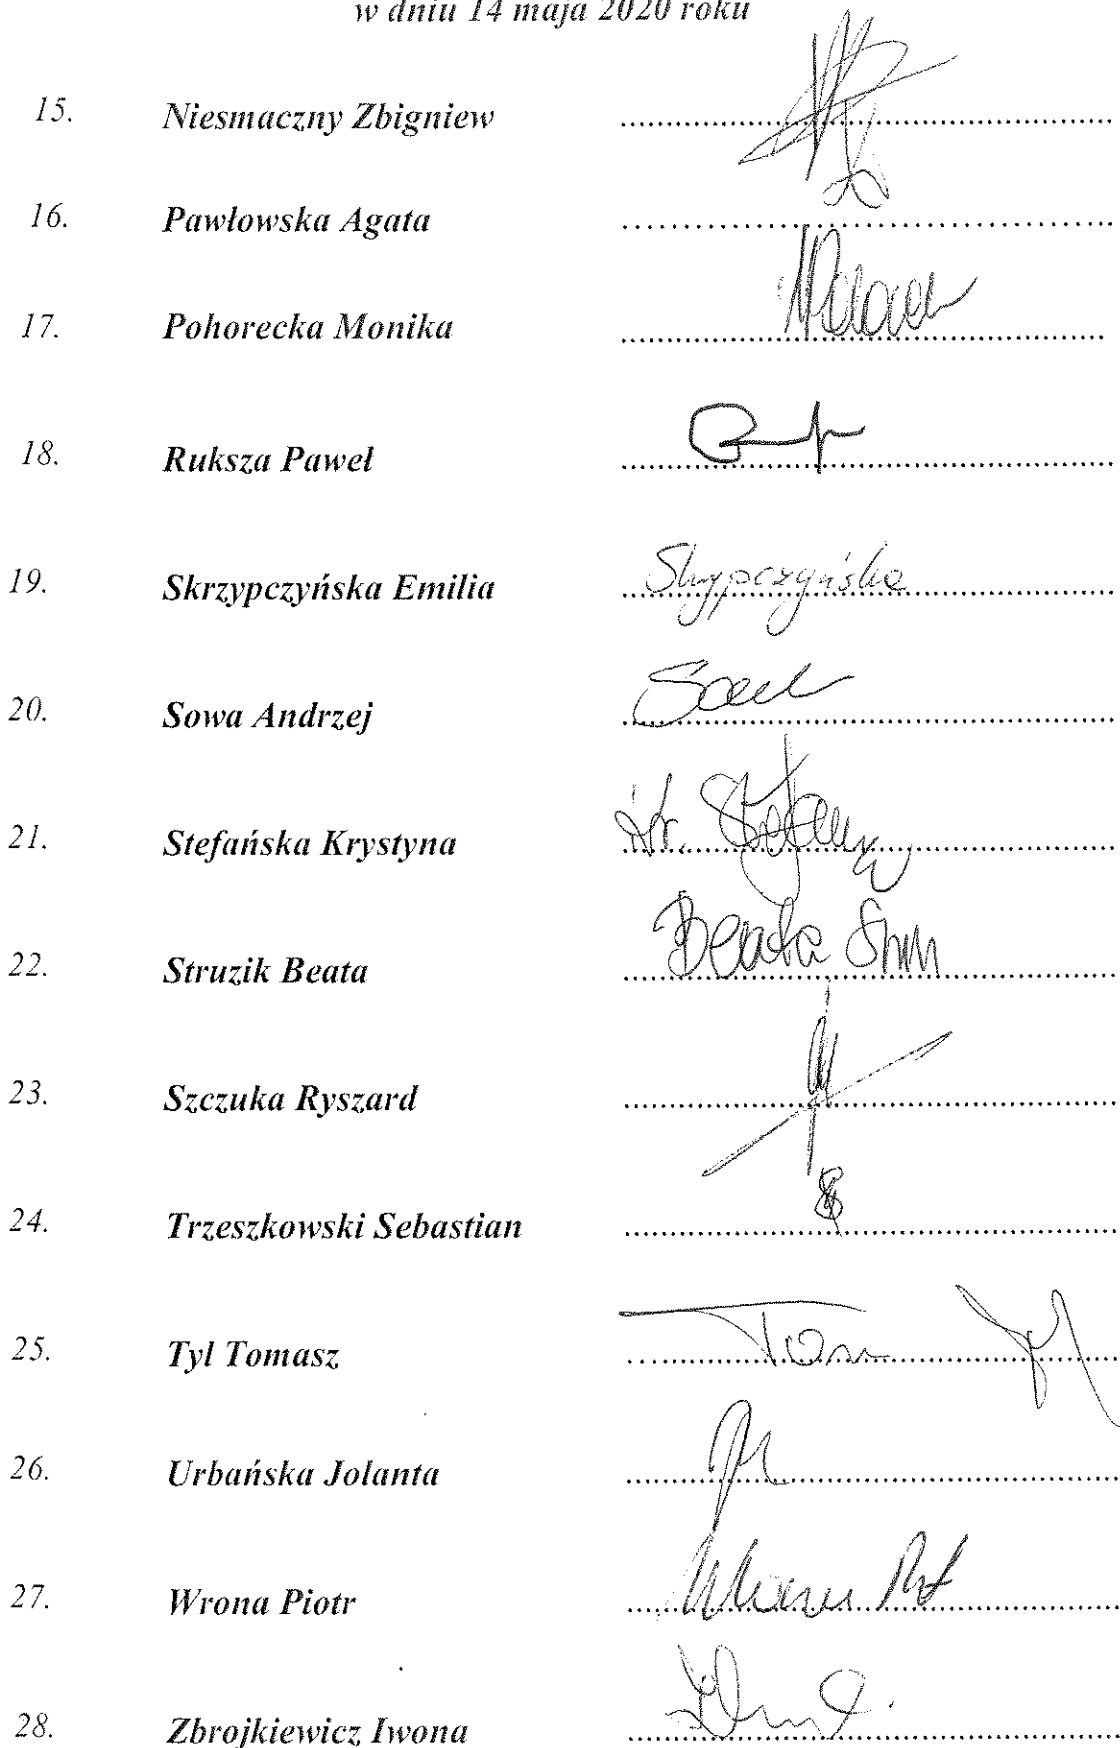 w dniu 14 maja 2020 roku
15. Niesmaczny Zbigniew
16. Pawłowska Agata
17. Pohorecka Monika
18. Ruksza Paweł
19. Skrzypczyńska Emilia Skrypczyńska
20. Sowa Andrzej
21. Stefańska Krystyna
22. Struzik Beata Beata
23. Szczuka Ryszard
24. Trzeszkowski Sebastian
25. Tyl Tomasz Tom
26. Urbańska Jolanta
27. Wrona Piotr
28. Zbrojkiewicz Iwona